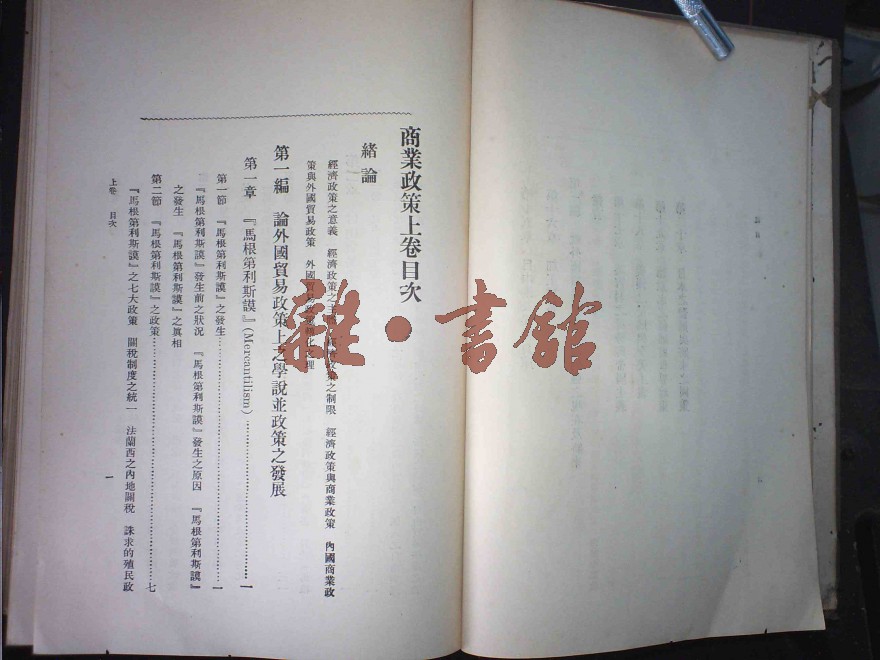 商業政策上卷目次
緒論
經濟政策之意義 經濟政策之 經濟政策之制限 經濟政策與商業政策 內國商業政
策與外國貿易政策 外國貿易政策 理
第一編 論外國貿易政策上之學說並政策之發展
第一章 『馬根第利斯謨』(Mercantilism)…………一
第一節 『馬根第利斯謨』之發生…………一
『馬根第利斯謨』發生前之狀況 『馬根第利斯謨』發生之原因 『馬根第利斯謨』
之發生 『馬根第利斯謨』之眞相
第二節 『馬根第利斯謨』之政策…………七
『馬根第利斯謨』之七大政策 關稅制度之統一 法蘭西之內地關稅 誅求的殖民政
上卷 目次 一
雜●書館